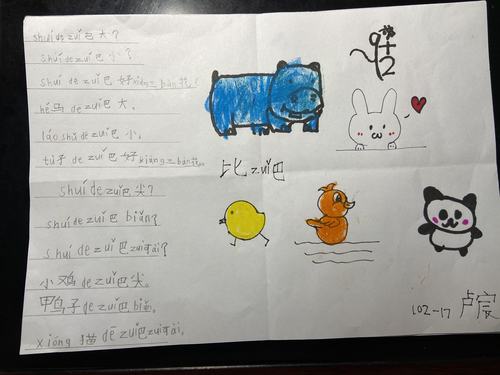 shuí de zuǐ巴大?
shuí de zuǐ巴小?
shuí de zuǐ巴好xiàng三bàn花?
hé马de zuǐ巴大。
láo shǔ de zuǐ巴小。
tù子de zuǐ巴好xiàng三bàn花。
shuí de zuǐ巴尖?
shuí de zuǐ巴biǎn?
shuí de zuǐ巴zuì可ài?
小鸡de zuǐ巴尖。
鸭子de zuǐ巴biǎn。
xióng猫de zuǐ巴zuì可ài。
比zuǐ巴
102-17 卢宸